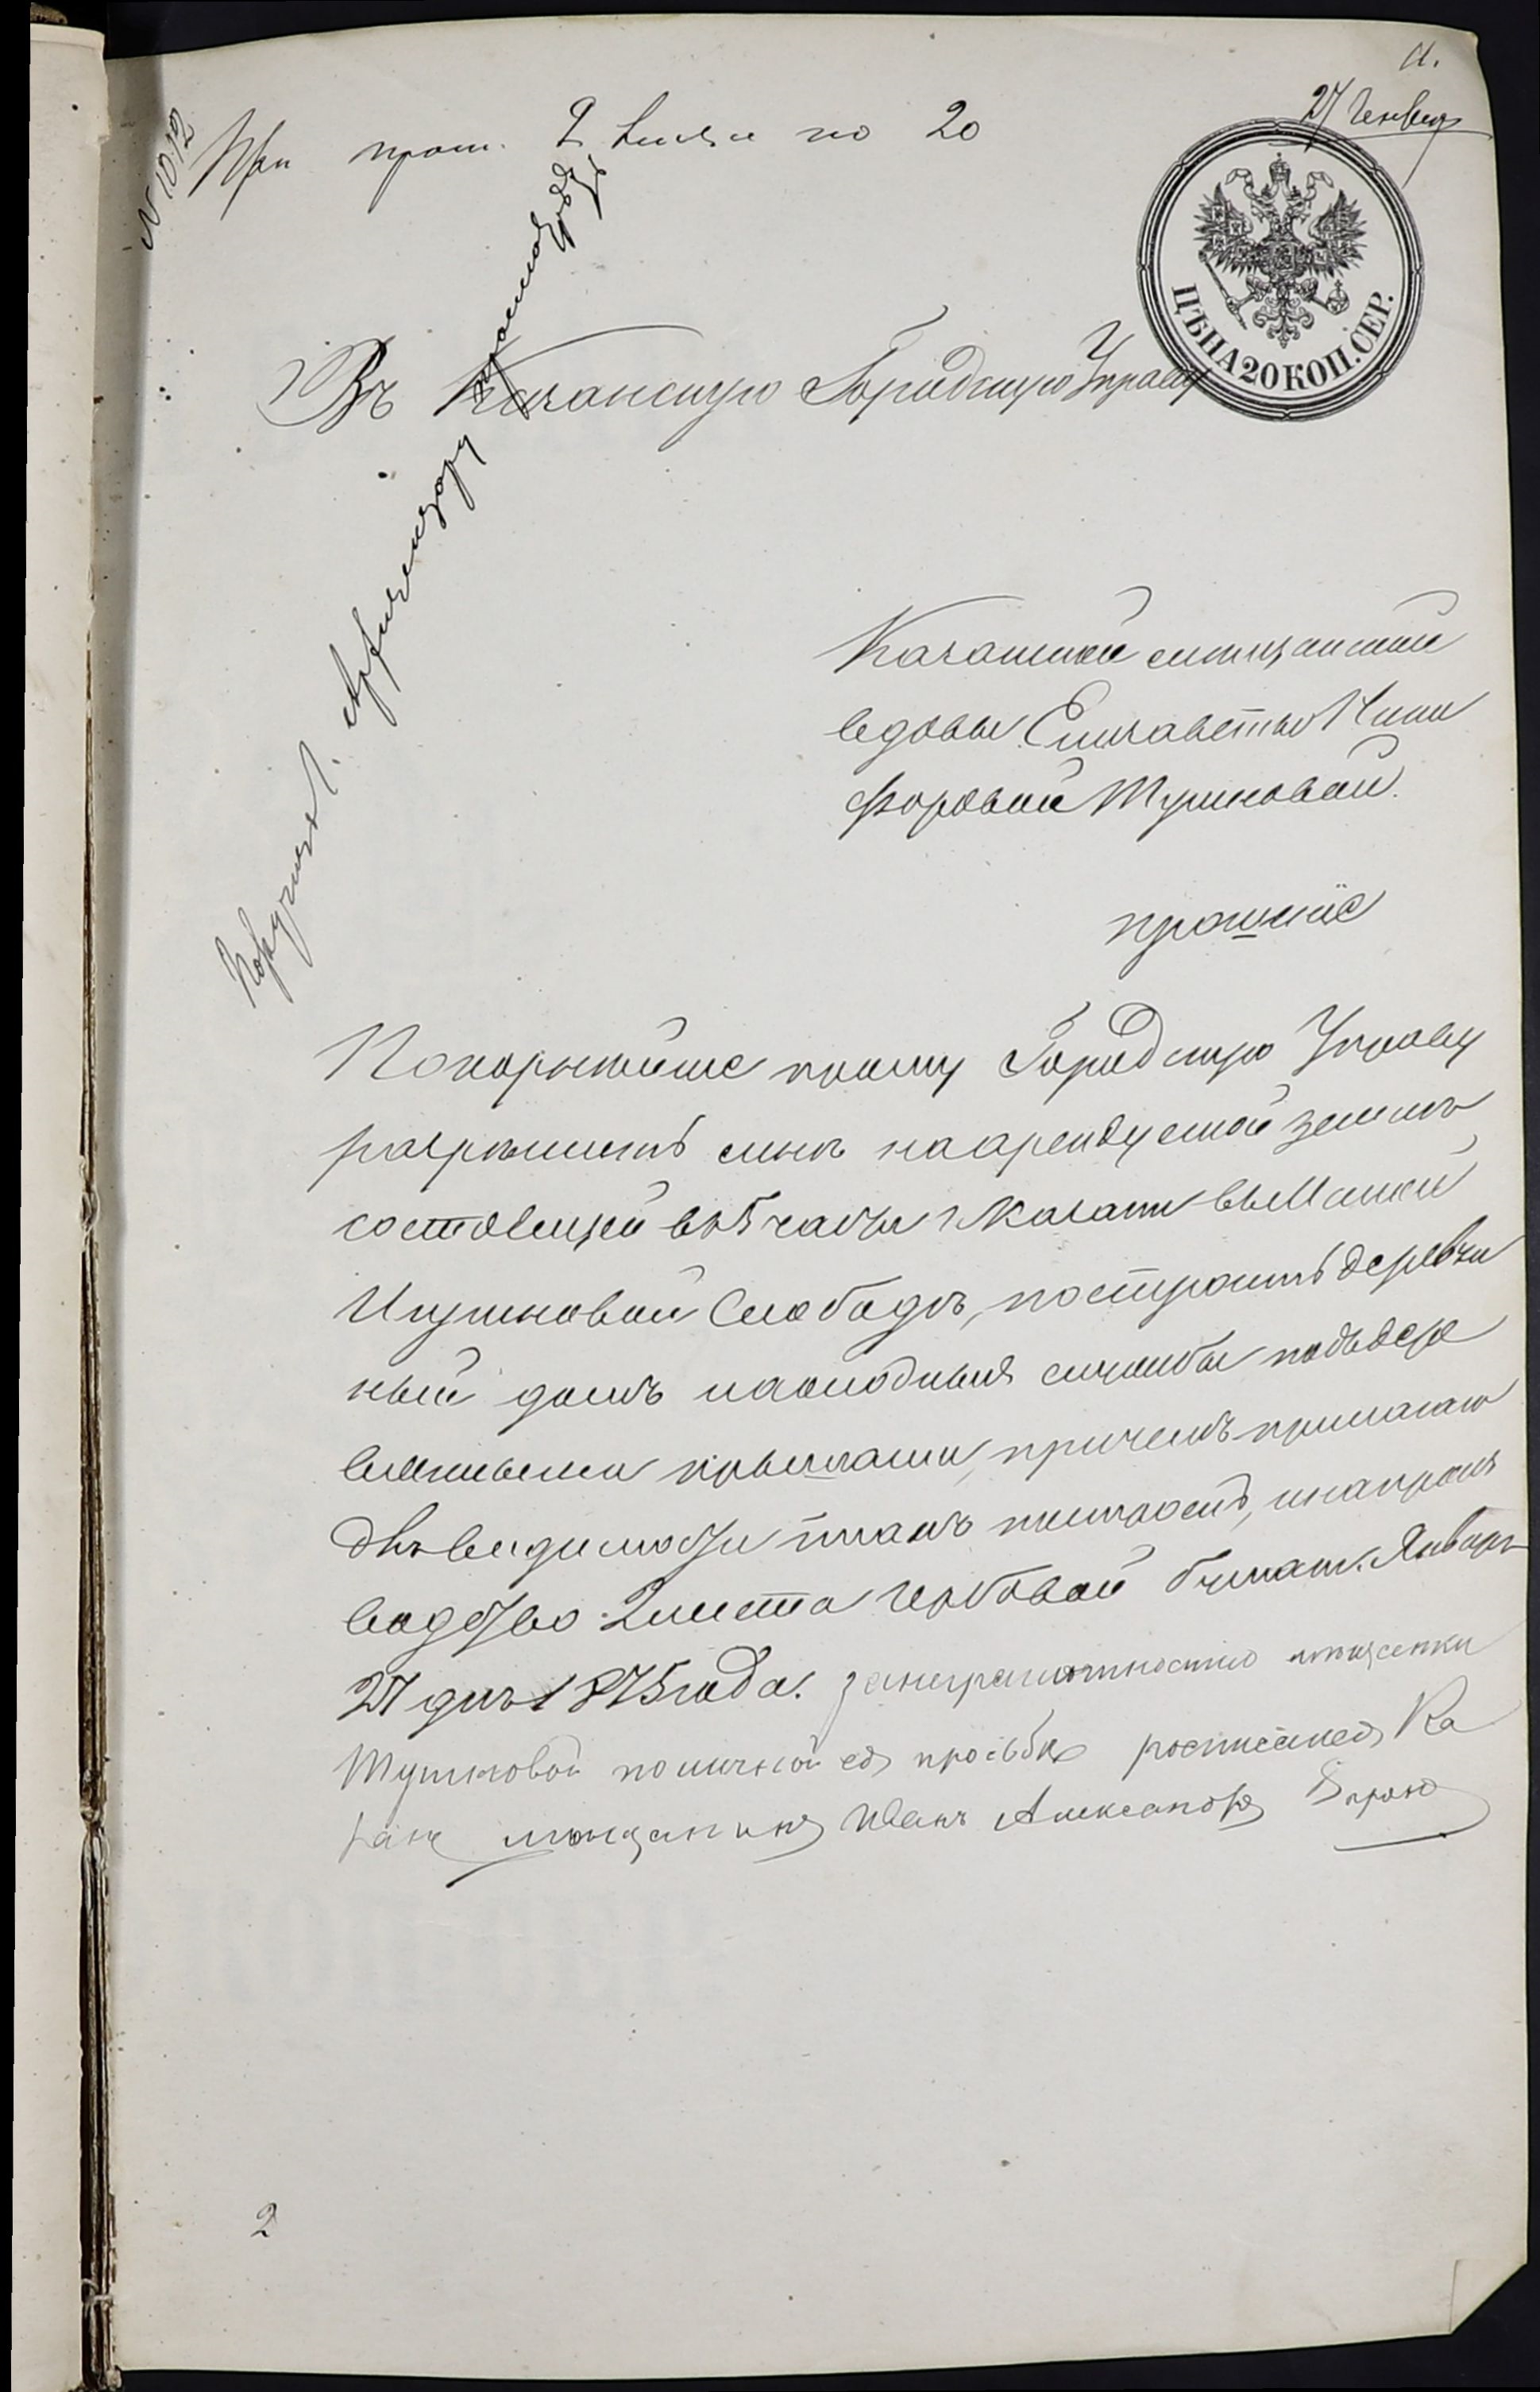 27 Генваря
N 1012
При прош. 2 листа по 20
ЦѢНА 20 КОП. СЕР.
Въ Казанскую Городскую Управу
Поручить Г. Архитектору
Казанской мѣщанской
вдовы Елизаветы Ники
форовой Тушновой
прошеніе
Покорнейше прошу Городскую Управу
разрешить мнѣ на арендуемой землѣ
состоящей в 5 части г Казани въ
Игумновой Слободѣ, построить деревян
ный домъ и холодныя службы подъ дере
вянными крышами, причемъ прилагаю
двѣ видимости планъ и на произ
водство 2 листа гербовой бумаги. Января
27 дня 1875 года. за неграмотностию мещанки
Тушновой по личной ея просьбе росписался Ка
зан мещанинъ Иванъ Александровъ
2